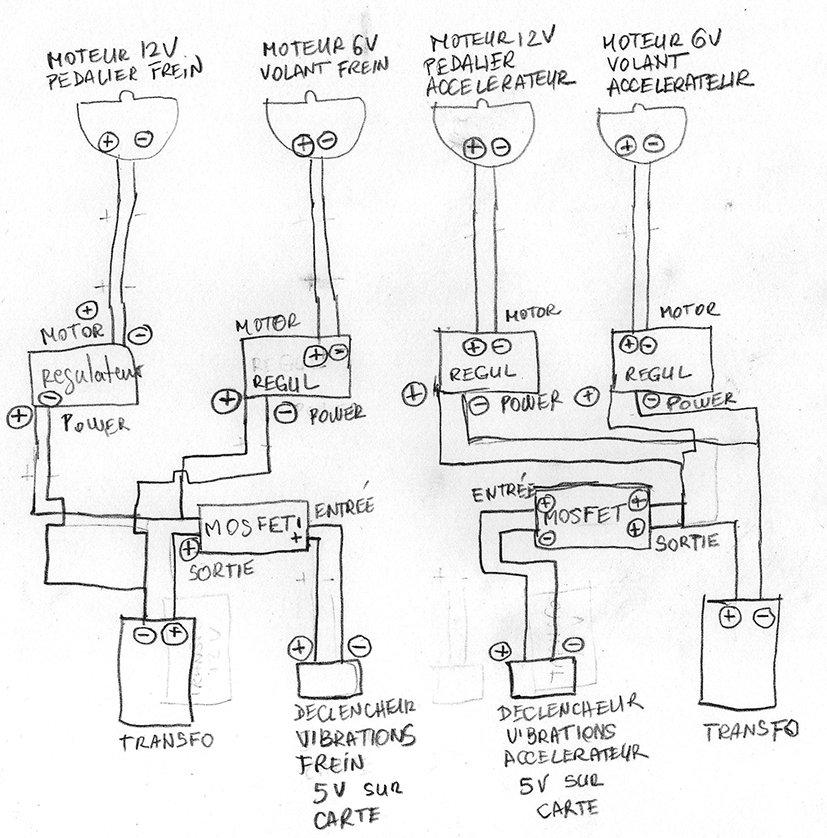 MOTEUR 12V
PEDALIER FREIN
MOTEUR 6V
VOLANT FREIN
MOTEUR 12V
PEDALIER
ACCELERATEUR
MOTEUR 6V
VOLANT
ACCELERATEUR
+ -
+ -
+ -
+ -
+
MOTOR -
Régulateur
-
+ POWER
MOTOR
+ -
REGUL
+ - POWER
MOTOR
+ -
REGUL
+ - POWER
MOTOR
+ -
REGUL
+ - POWER
MOSFET +
ENTRÉE
+
SORTIE
ENTRÉE
+ +
MOSFET
- +
SORTIE
- +
TRANSFO
+ -
DECLENCHEUR
VIBRATIONS
FREIN
5V SUR
CARTE
+ -
DECLENCHEUR
VIBRATIONS
ACCELERATEUR
5V SUR
CARTE
+ -
TRANSFO